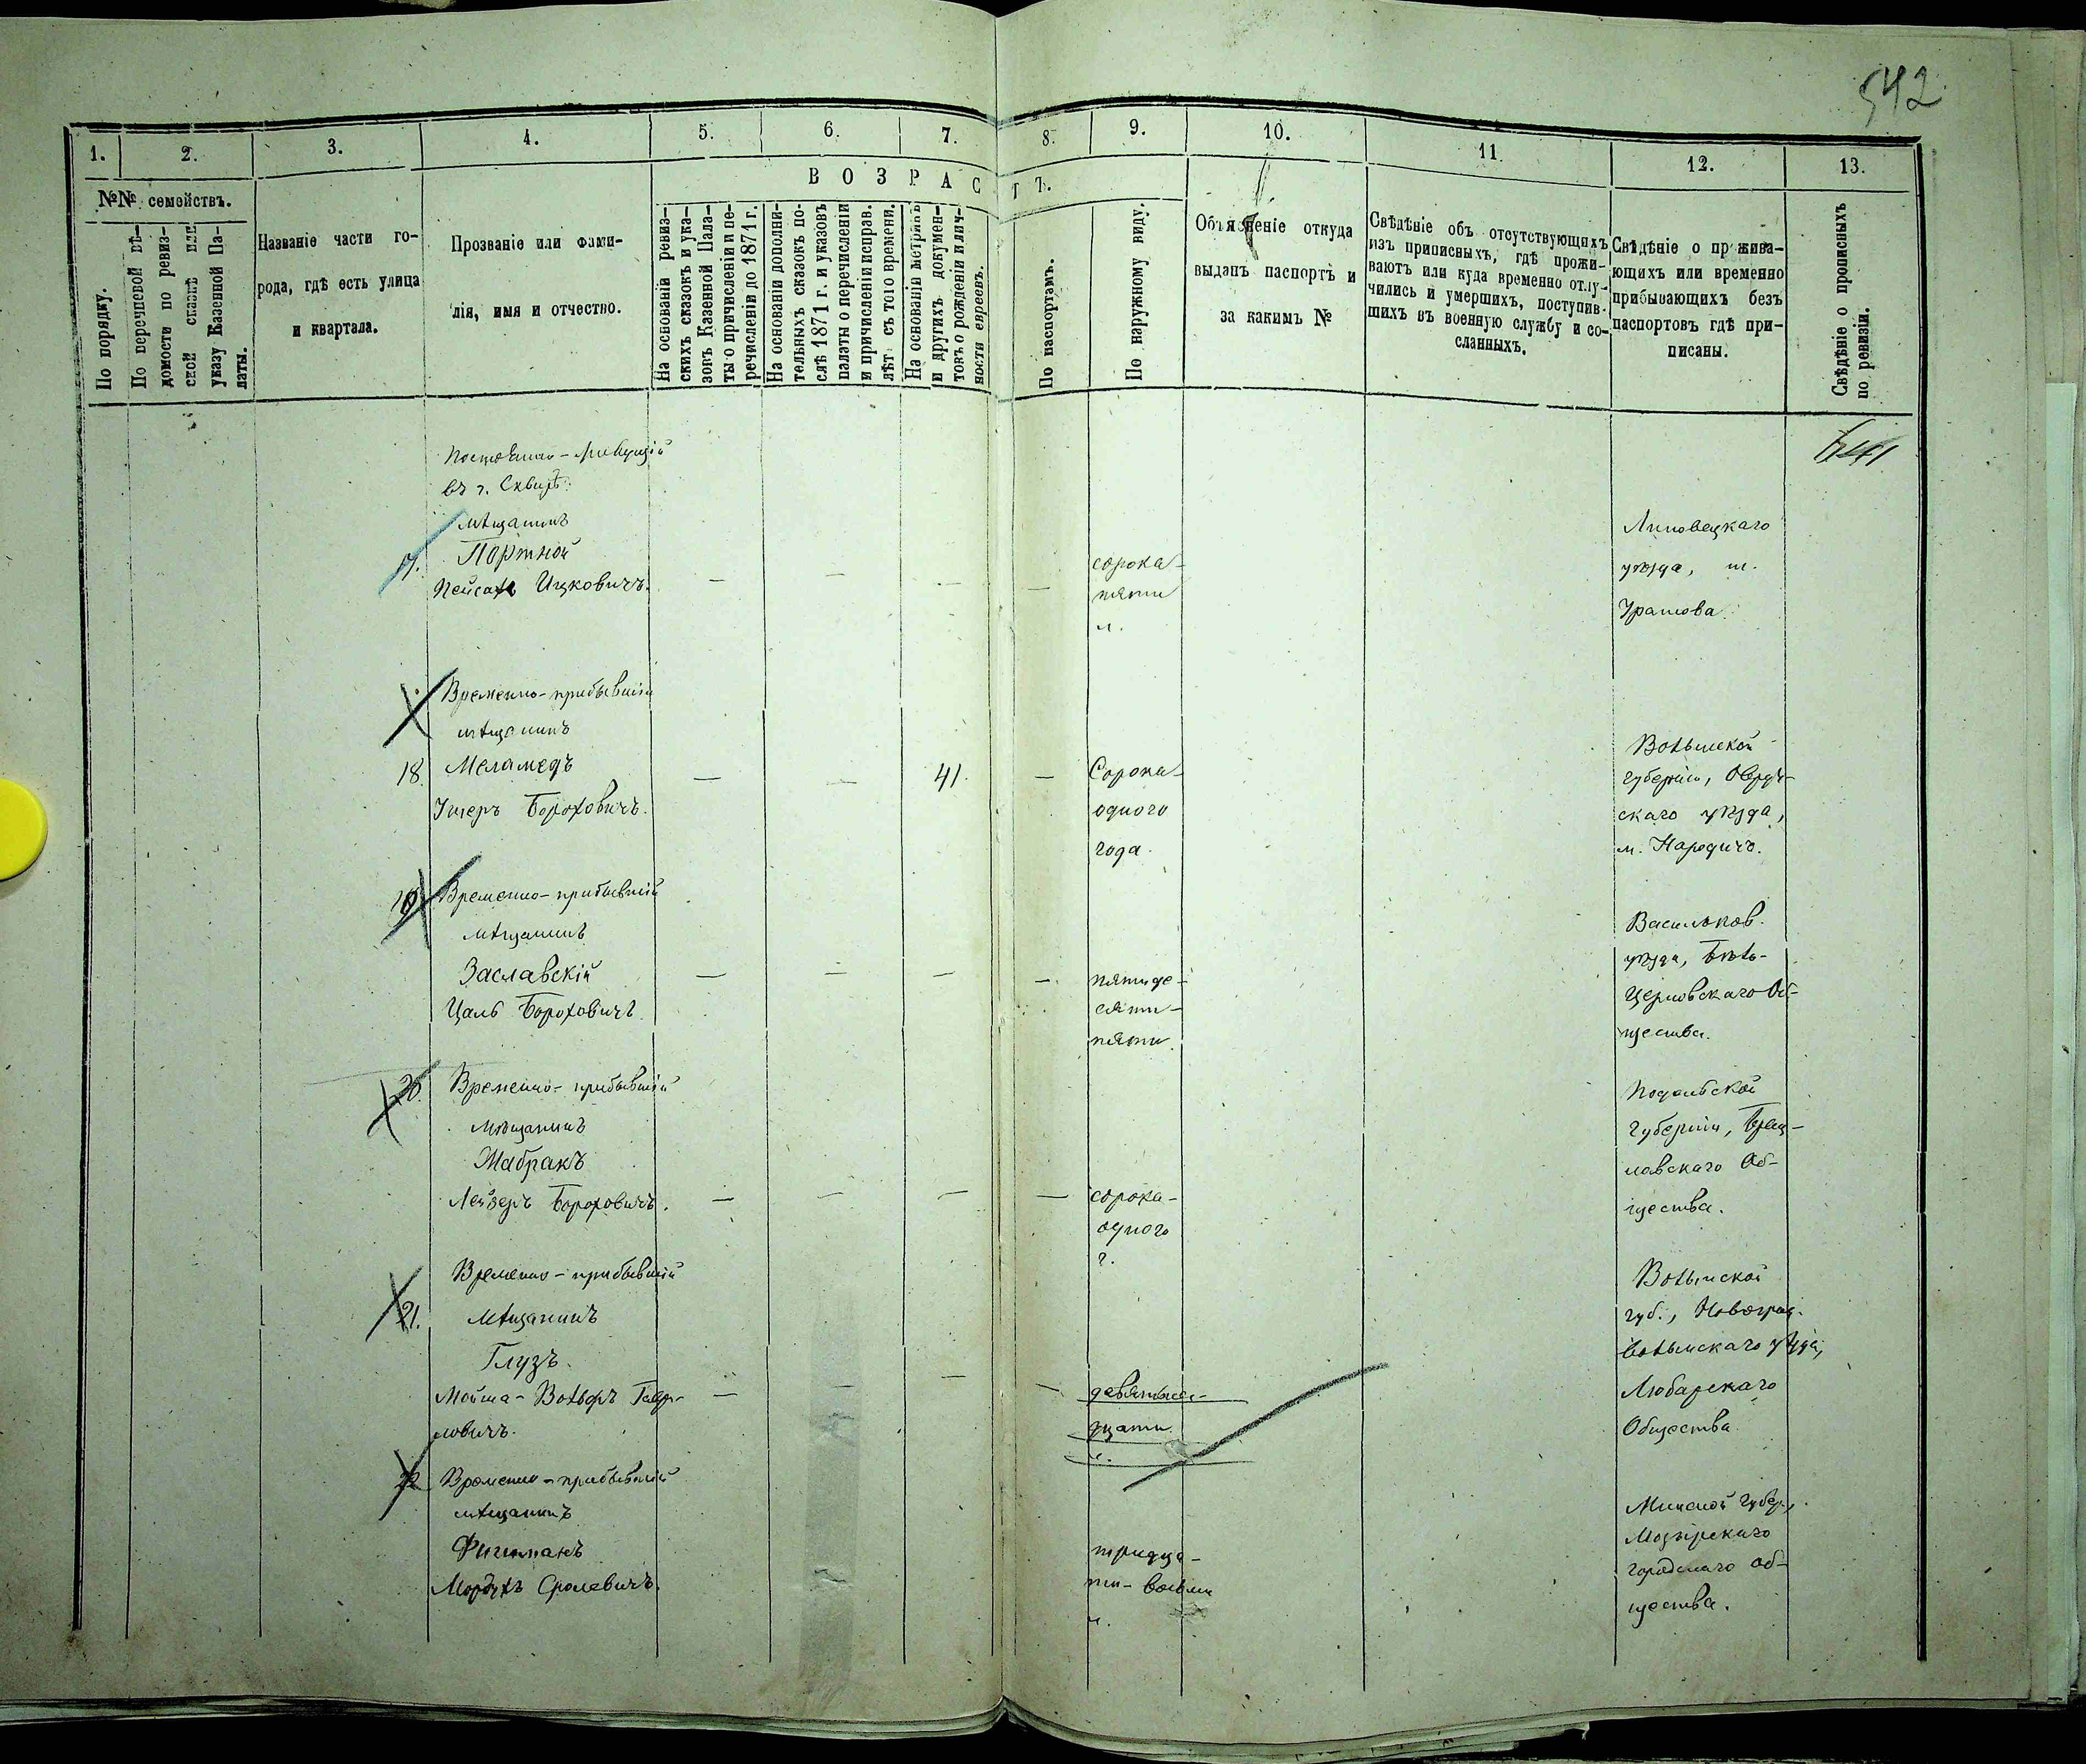 542
1.
2.
3.
4.
5.
6.
7.
8.
9.
10.
11.
12.
13.
№№ семействъ.
ВОЗРАСТЪ.
По порядку.
По перечневой вѣ-
домости по ревиз-
ской сказкѣ или
указу Казенной Па-
латы.
Названіе части го-
рода, гдѣ есть улица
и квартала.
Прозваніе или фами-
лія, имя и отчество.
На основаніи ревиз-
скихъ сказокъ и ука-
зовъ Казенной Пала-
ты о причисленіи и пе-
речисленіи до 1871 г.
На основаніи дополни-
тельныхъ сказокъ по-
слѣ 1871 г. и указовъ
палаты о перечисленіи
и причисленіи исправ.
лѣт. съ того времени.
На основаніи метрикъ
и другихъ докумен-
товъ о рожденіи и лич-
ности евреевъ.
По паспортамъ.
По наружному виду.
Объясненіе откуда
выданъ паспортъ и
за какимъ №
Свѣдѣніе объ отсутствующихъ
изъ приписныхъ, гдѣ прожи-
ваютъ или куда временно отлу-
чились и умершихъ, поступив-
шихъ въ военную службу и со-
сланныхъ.
Свѣдѣніе о прожива-
ющихъ или временно
прибывающихъ безъ
паспортовъ гдѣ при-
писаны.
Свѣдѣніе о прописныхъ
по ревизіи.
Постоянно-живущій
въ г. Сквирѣ:
мѣщанинъ
17. Портной
Пейсахъ Ицковичъ.
—
—
—
—
сорока-
пяти
л.
Липовецкаго
уѣзда, м.
Уратова
Временно-прибывшій
мѣщанинъ
18 Меламедъ
Ушеръ Бороховичъ.
—
—
41.
—
Сорока-
одного
года.
Волынской
губерніи, Овруч-
скаго уѣзда,
м. Народичъ.
19 Временно-прибывшій
мѣщанинъ
Заславскій
Цаль Бороховичъ
—
—
—
—
пятиде-
сяти-
пяти
Васильков.
уѣзда, Бѣло-
Церковскаго Об-
щества.
20. Временно-прибывшій
мѣщанинъ
Мабракъ
Лейзеръ Бороховичъ.
—
—
—
—
сорока-
одного
г.
Подольской
губерніи, Брац-
лавскаго Об-
щества.
Временно-прибывшій
21. мѣщанинъ
Глузъ.
Мойша-Вольфъ
ловичъ.
—
—
—
—
девятнад-
цати
л.
Волынской
губ., Новоград-
волынскаго уѣзда,
Любарскаго
Общества
22 Временно-прибывшій
мѣщанинъ
Мордухъ Сролевичъ.
тридца-
ти-восьми
л.
Минской губер.,
Мозырскаго
городскаго об-
щества.